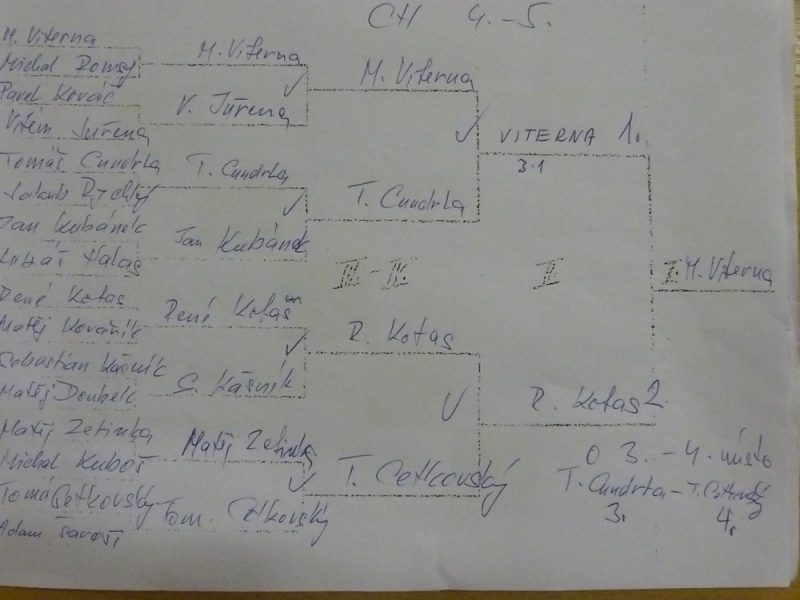 CH 4.-5.
M. Viterna
Michal Domsy
Pavel Kováč
Vilém Juřena
Tomáš Cundrla
Jakub Rychlý
Jan Kubánek
Lukáš Halas
René Kotas
Matěj Kovařník
Sebastián Kášník
Matěj Doubek
Matěj Zetinka
Michal Kuboš
Tomáš Cetkovský
Adam
M. Viterna
V. Juřena
T. Cundrla
Jan Kubánek
René Kotas
S. Kášník
Matěj Zetinka
Tom. Cetkovský
M. Viterna
T. Cundrla
III. - IV.
R. Kotas
T. Cetkovský
VITERNA 1.
3.1
II.
R. Kotas 2.
I. M. Viterna
O 3. - 4. místo
T. Cundrla - T. Cetkovský
3. 4.